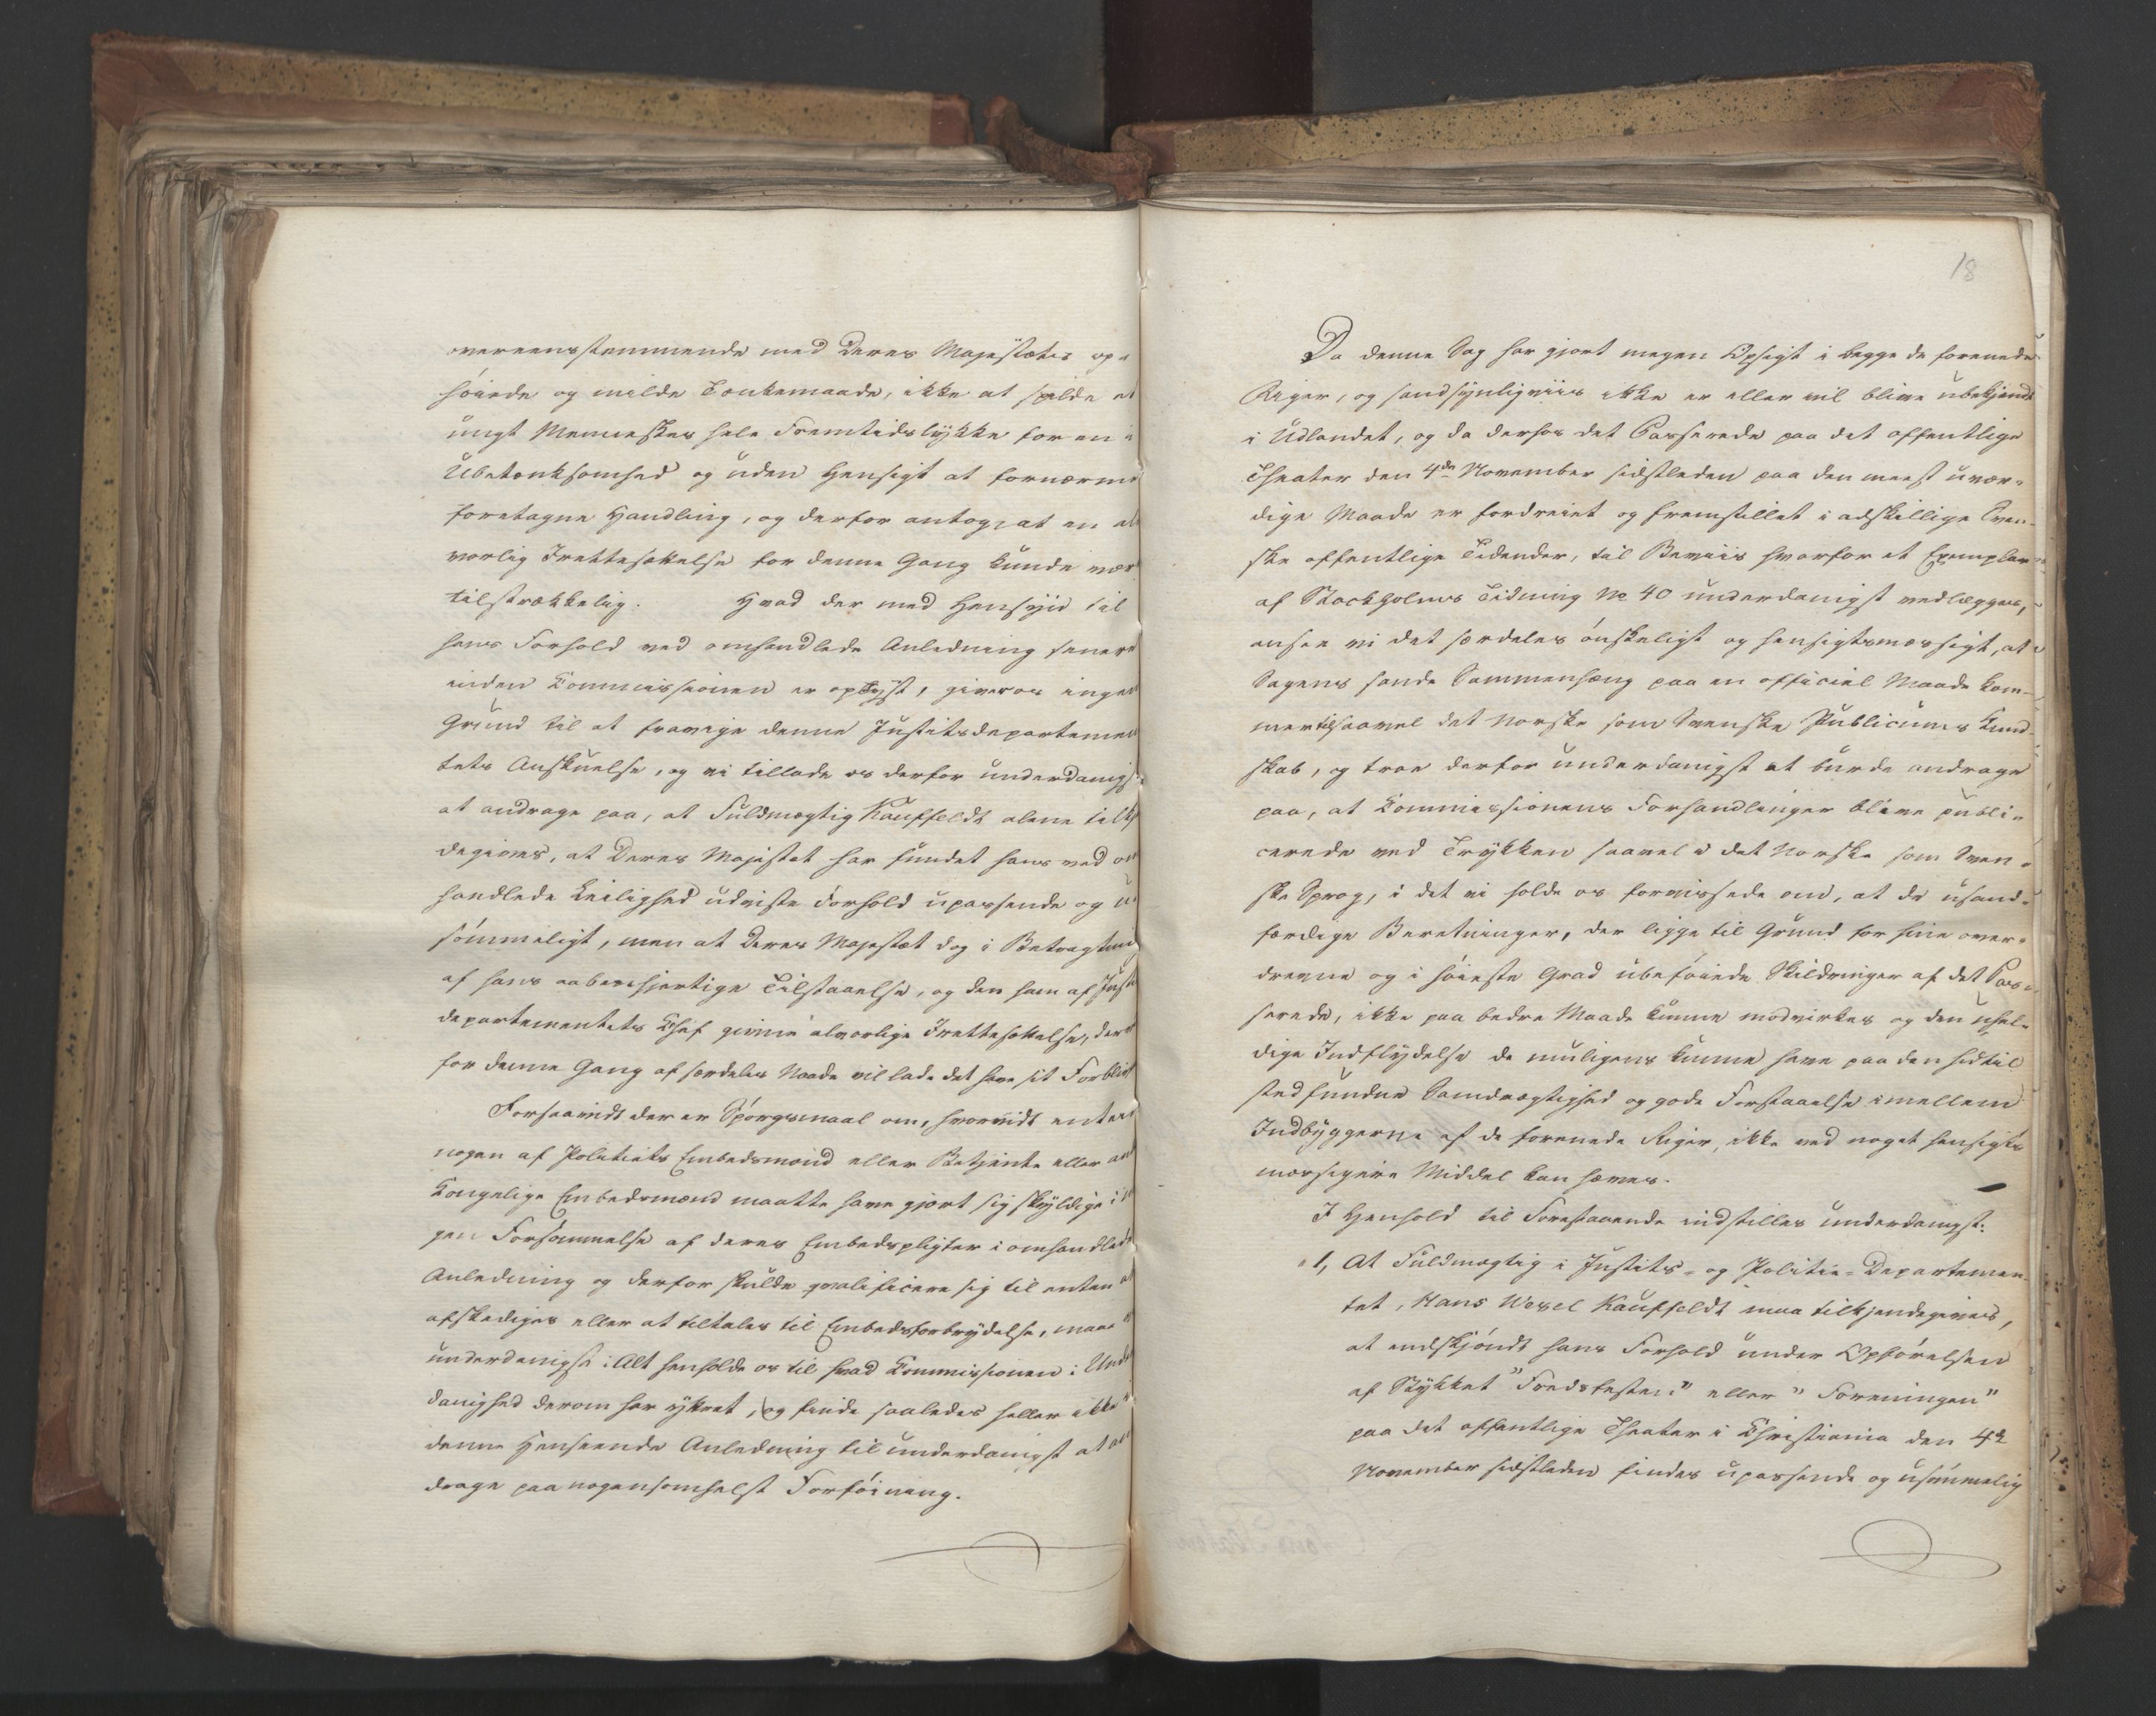 overeensstemmende med Deres Majestæts op-
høiede og milde Tænkemaade, ikke at spilde et
ungt Menneskes hele Fremtidslykke for en i
Ubetænksomhed og uden Hensigt at fornærme
foretagne Handling, og derfor antog, at en al
vorlig Irettesættelse for denne Gang kunde vær
tilstrækkelig. Hvad der med Hensyn til
hans Forhold ved omhandlede Anledning senere
inden Commissionen er oplyst, giver os ingen
Grund til at fravige denne Justitsdepartemen
tets Anskuelse, og vi tillade os derfor underdanigst
at andrage paa, at Fuldmægtig Kauffeldt alene tilkj
degives, at Deres Majestæt har fundet hans ved om
handlede Leilighed udviste Forhold upassende og u
sømmeligt, men at Deres Majestæt dog i Betragtning
af hans aabenhjertige Tilstaaelse, og den ham af Justi
departementets Chef givne alvorlige Irettesættelse, der
for denne Gang af særdeles Naade vil lade det have sit Forbliv
Forsaavidt der er Spørgsmaal om, hvorvidt enten
nogen af Politiets Embedsmænd eller Betjente eller and
Kongelige Embedsmænd maatte have gjort sig skyldige i no
gen Forsømmelse af deres Embedspligter i omhandlede
Anledning og derfor skulde qvalificere sig til enten at
afskediges eller at tiltales til Embedsforbrydelse, maae
underdanigst i Alt henholde os til hvad Commissionen i Under
danighed derom har yttret, og finde saaledes heller ikke i
denne Henseende Anledning til underdanigst at an
drage paa nogensomhelst Forføining.
18
Da denne Sag har gjort megen Opsigt i begge de forenede
Riger, og sandsynligviis ikke er eller vil blive ubekjendt
i Udlandet, og da derhos det Passerede paa det offentlige
Theater den 4de November sidstleden paa den meest uvær-
dige Maade er fordreiet og fremstillet i adskillige Sven-
ske offentlige Tidender, til Beviis hvorfor et Exemplar
af Stockholms Tidning No 40 underdanigst vedlægges,
ansee vi det særdeles ønskeligt og hensigtsmæssigt, at
Sagens sande Sammenhæng paa en officiel Maade kom-
mer til saavel det Norske som Svenske Publicums Kund-
skab, og troe derfor underdanigst at burde andrage
paa, at Commissionens Forhandlinger blive publi-
cerede ved Trykken saavel i det Norske som Sven-
ske Sprog, i det vi holde os forvissede om, at de usand-
færdige Beretninger, der ligge til Grund for hine over-
drevne og i høieste Grad ubeføiede Skildringer af det Pas-
serede, ikke paa bedre Maade kunne modvirkes og den uhel-
dige Indflydelse de muligens kunne have paa den hidtil
stedfundne Samdrægtighed og gode Forstaaelse imellem
Indbyggerne af de forenede Riger, ikke ved noget hensigts
mæssigere Middel kan hæves.
I Henhold til Forestaaende indstilles underdanigst:
1, At Fuldmægtig i Justits- og Politie-Departemen-
tet, Hans Wesel Kauffeldt maa tilkjendegives,
at endskjøndt hans Forhold under Opførelsen
af Stykket "Fredsfesten" eller "Foreningen"
paa det offentlige Theater i Christiania den 4de
November sidstleden findes upassende og usømmelig